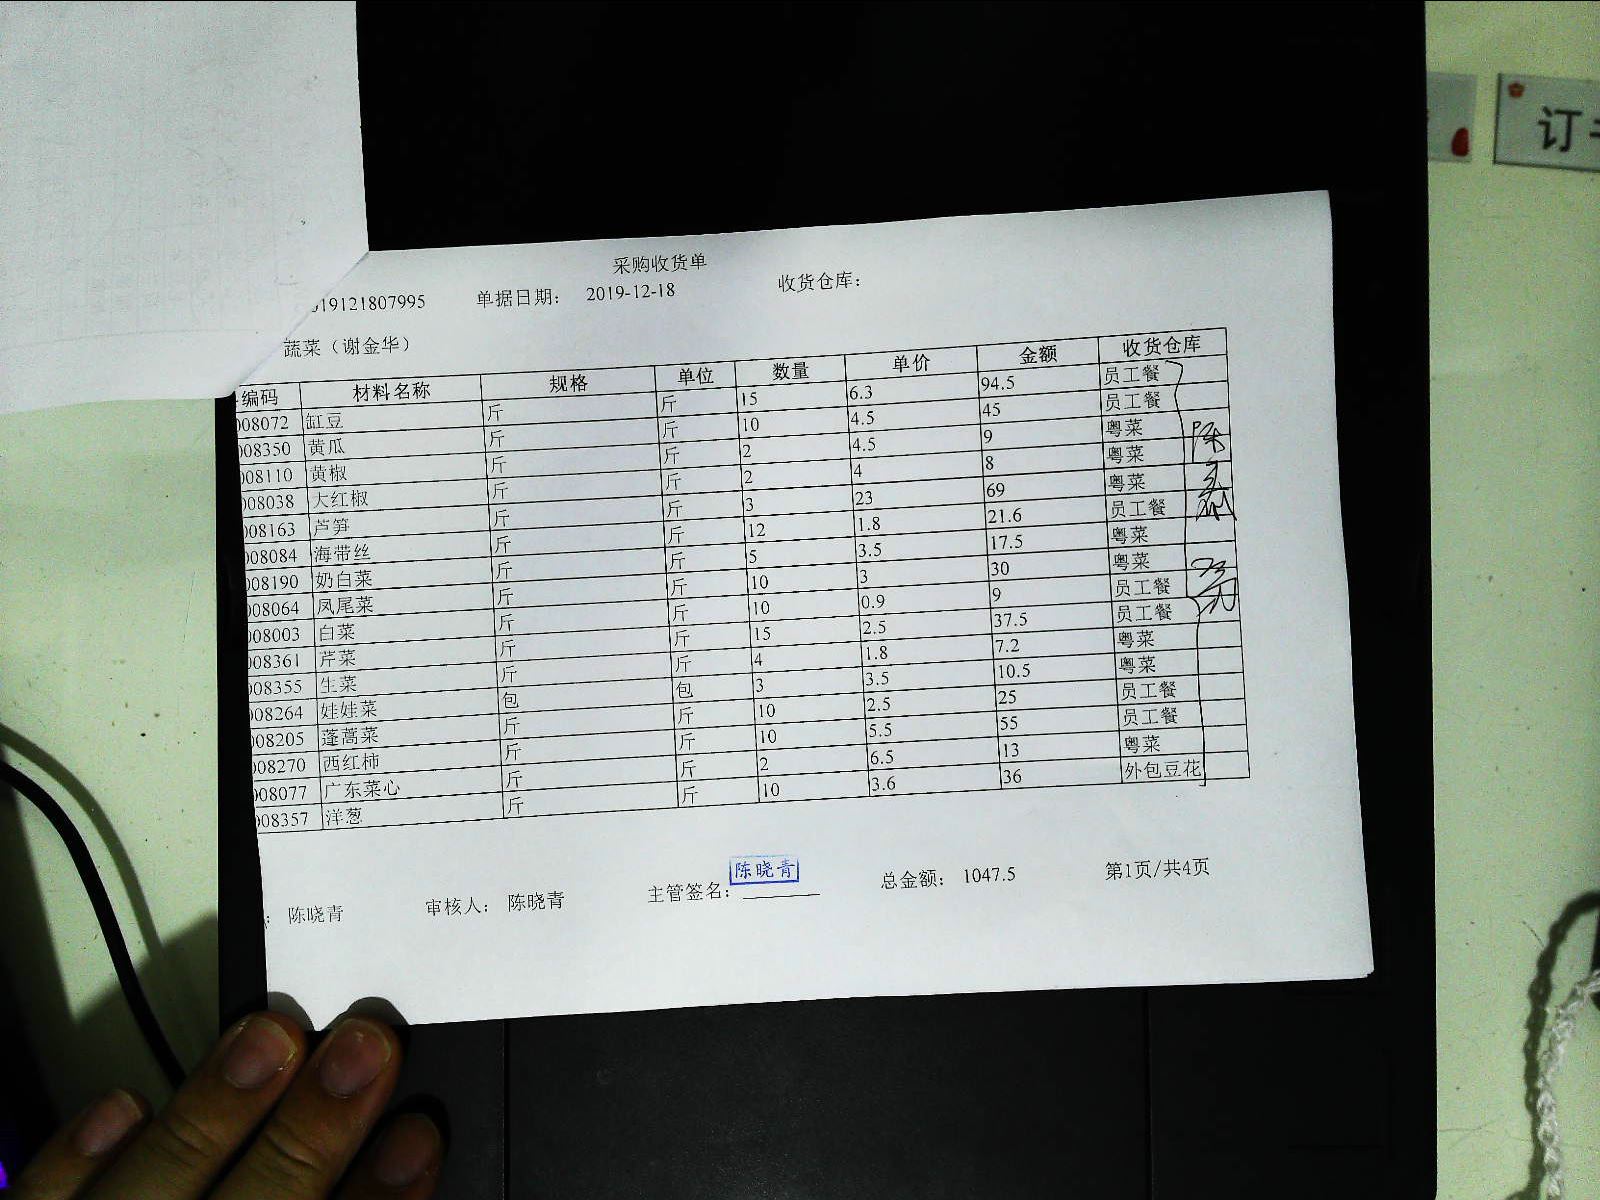 订
采购收货单
19121807995 单据日期： 2019-12-18 收货仓库：
蔬菜（谢金华）
编码 材料名称 规格 单位 数量 单价 金额 收货仓库
08072 缸豆 斤 斤 15 6.3 94.5 员工餐
08350 黄瓜 斤 斤 10 4.5 45 员工餐
08110 黄椒 斤 斤 2 4.5 9 粤菜
08038 大红椒 斤 斤 2 4 8 粤菜
08163 芦笋 斤 斤 3 23 69 粤菜
08084 海带丝 斤 斤 12 1.8 21.6 员工餐
08190 奶白菜 斤 斤 5 3.5 17.5 粤菜
08064 凤尾菜 斤 斤 10 3 30 粤菜
08003 白菜 斤 斤 10 0.9 9 员工餐
08361 芹菜 斤 斤 15 2.5 37.5 员工餐
08355 生菜 斤 斤 4 1.8 7.2 粤菜
08264 娃娃菜 包 包 3 3.5 10.5 粤菜
08205 蓬蒿菜 斤 斤 10 2.5 25 员工餐
08270 西红柿 斤 斤 10 5.5 55 员工餐
08077 广东菜心 斤 斤 2 6.5 13 粤菜
08357 洋葱 斤 斤 10 3.6 36 外包豆花
陈晓青
： 陈晓青 审核人： 陈晓青 主管签名： 总金额： 1047.5 第1页/共4页